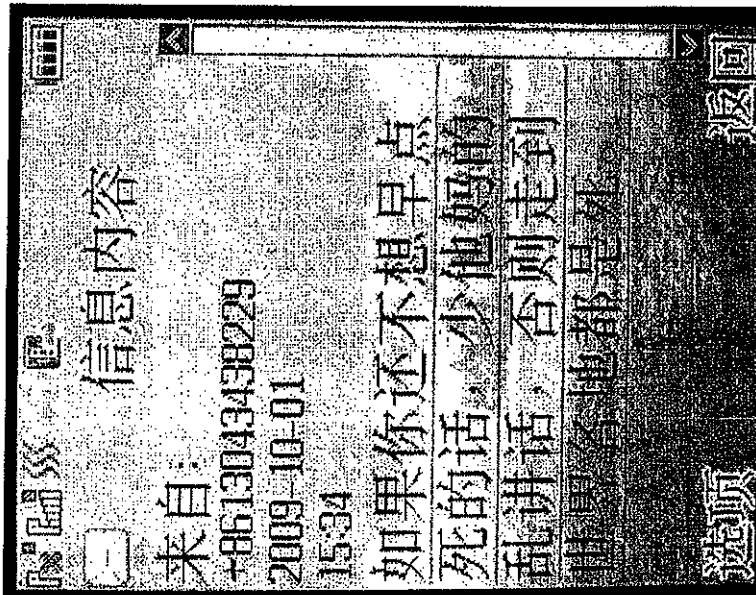 信息内容
来自:
+8613043438229
2009-10-01
15:34
如果你还不想早点
死的话，少他妈的
乱讲话，否则走到
世界各地都是外。
选项 返回